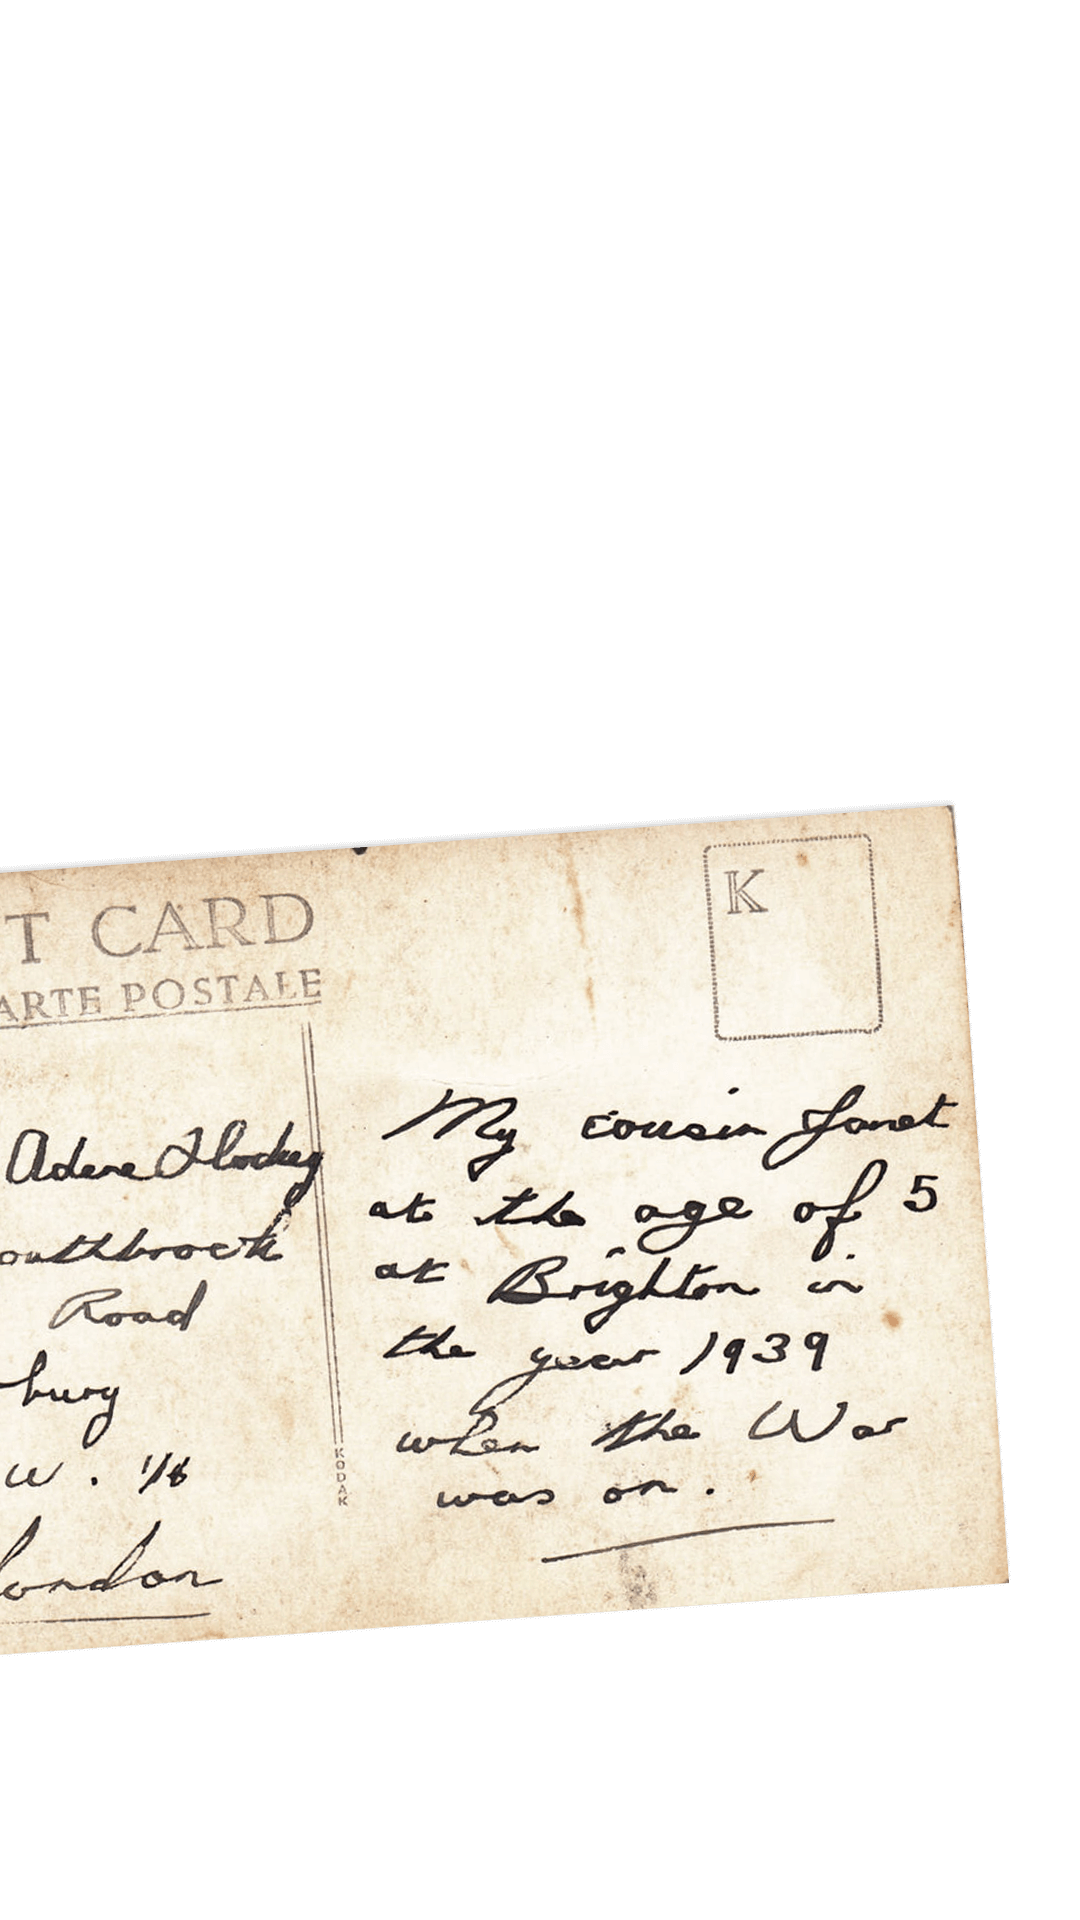 T CARD
ARTE POSTALE
K
Adene Hockey
outhbrook
Road
bury
W. 1/8
London
KODAK
My cousin Janet
at the age of 5
at Brighton in
the year 1939
when the War
was on.